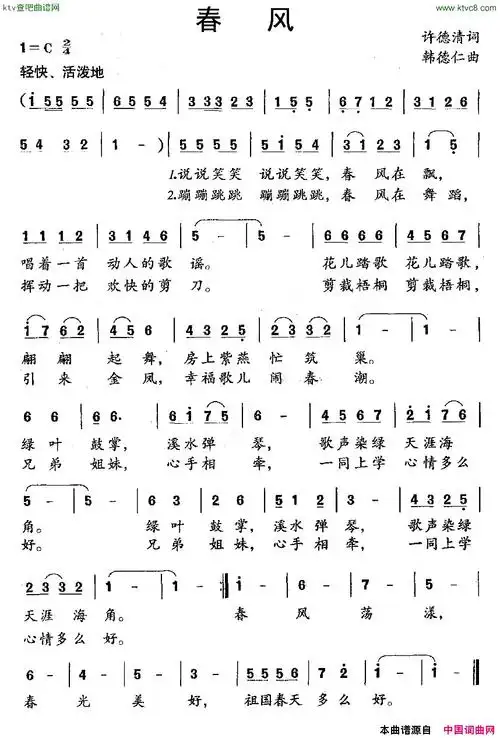 ktv查吧曲谱网
www.ktvc8.com
春 风
1=C 2/4
许德清词
韩德仁曲
轻快、活泼地
(i555 5555 | 6 5 5 4 | 3 3 3 2 3 3 | 1 5 5 | 6 6 7 1 2 | 3 1 2 3 |
5 4 3 2 | 1 - ) | 5 5 5 5 | 5 i 5 4 | 3 1 2 3 | 1 5 |
1.说说笑笑 说说笑笑, 春 风在 飘,
2.蹦蹦跳跳 蹦蹦跳跳, 春 风在 舞蹈,
1 1 1 2 | 3 1 4 6 | 5 - | 5 - | 6 6 6 7 | i 7 6 5 |
唱着一首 动人的歌 谣。 花儿踏歌 花儿踏歌,
挥动一把 欢快的剪 刀。 剪裁梧桐 剪裁梧桐,
i 7 6 2 | 4 5 6 | 4 3 2 5 | 2 3 3 2 3 | 1 - | 1 - |
翩 翩 起 舞, 房上紫燕 忙 筑 巢。
引 来 金 凤, 幸福歌儿 闹 春 潮。
6 6 | 6 6. | 6 i 7 5 | 6 6 | 4 5 6 7 | 2 i 7 6 |
绿 叶 鼓 掌, 溪水弹 琴, 歌声染绿 天涯海
兄 弟 姐 妹, 心手相 牵, 一同上学 心情多么
5 - | 5 - | 6 3 | 6 2 | 5 1 2 | 3 2 | 4 3 2 5 |
角。 绿 叶 鼓 掌, 溪水弹 琴, 歌声染绿
好。 兄 弟 姐 妹, 心手相 牵, 一同上学
2 3 3 2 3 | 1 - | 1 - :| i - | 6 - | 7 - | 5 - |
天涯 海 角。 春 风 荡 漾,
心情多么 好。
6 - | 4 - | 3 - | 1 - | 5 5 5 5 | 6 7 2 | i - | i - ‖
春 光 美 好, 祖国春天 多么 好。
本曲谱源自 中国词曲网